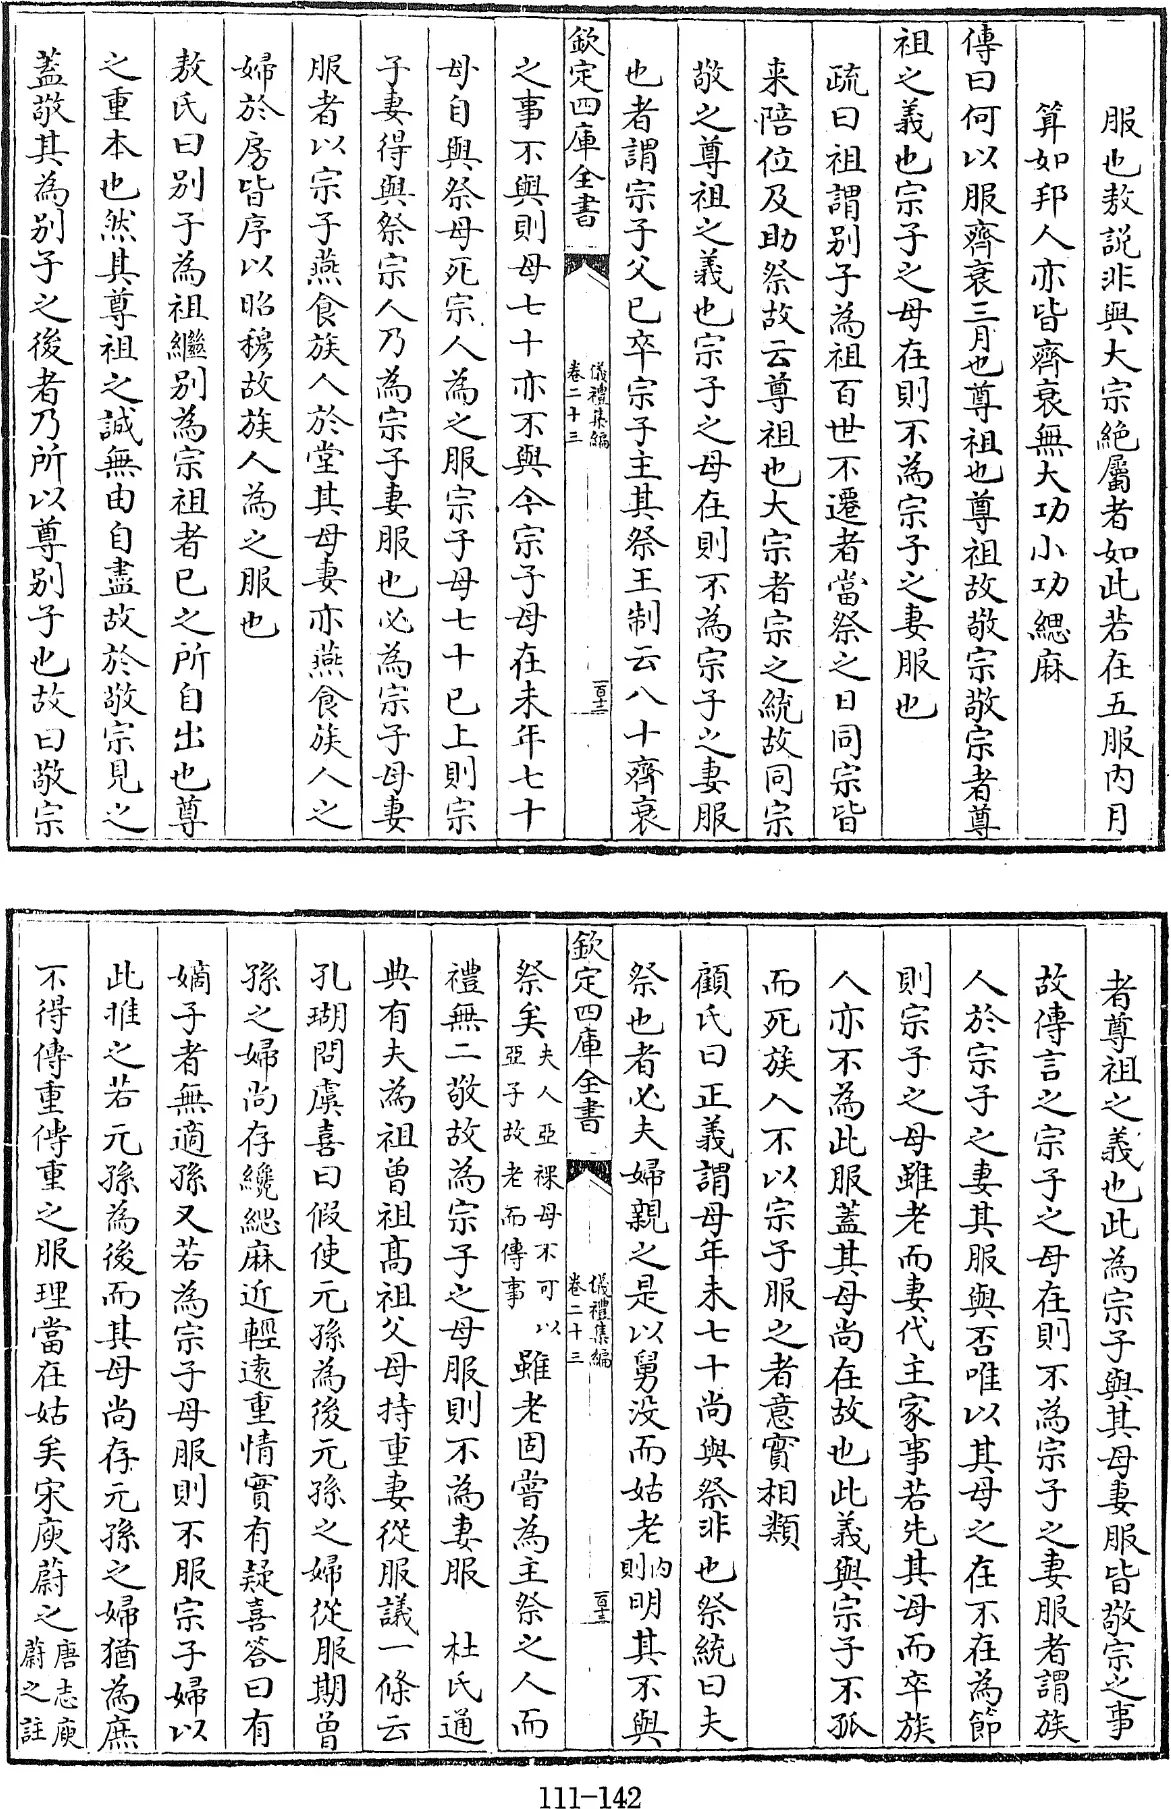 服也敖説非與大宗絶屬者如此若在五服内月
算如邦人亦皆齊衰無大功小功緦麻
傳曰何以服齊衰三月也尊祖也尊祖故敬宗敬宗者尊
祖之義也宗子之母在則不為宗子之妻服也
疏曰祖謂别子為祖百世不遷者當祭之日同宗皆
来陪位及助祭故云尊祖也大宗者宗之統故同宗
敬之尊祖之義也宗子之母在則不為宗子之妻服
也者謂宗子父已卒宗子主其祭王制云八十齊衰
欽定四庫全書
儀禮集編
卷二十三
百十二
之事不與則母七十亦不與今宗子母在未年七十
母自與祭母死宗人為之服宗子母七十已上則宗
子妻得與祭宗人乃為宗子妻服也必為宗子母妻
服者以宗子燕食族人於堂其母妻亦燕食族人之
婦於房皆序以昭穆故族人為之服也
敖氏曰别子為祖繼别為宗祖者已之所自出也尊
之重本也然其尊祖之誠無由自盡故於敬宗見之
蓋敬其為别子之後者乃所以尊别子也故曰敬宗
者尊祖之義也此為宗子與其母妻服皆敬宗之事
故傳言之宗子之母在則不為宗子之妻服者謂族
人於宗子之妻其服與否唯以其母之在不在為節
則宗子之母雖老而妻代主家事若先其母而卒族
人亦不為此服蓋其母尚在故也此義與宗子不孤
而死族人不以宗子服之者意實相類
顧氏曰正義謂母年未七十尚與祭非也祭統曰夫
祭也者必夫婦親之是以舅没而姑老内則明其不與
欽定四庫全書
儀禮集編
卷二十三
百十三
祭矣夫人亞祼母不可以亞子故老而傳事雖老固嘗為主祭之人而
禮無二敬故為宗子之母服則不為妻服 杜氏通
典有夫為祖曾祖髙祖父母持重妻從服議一條云
孔瑚問虞喜曰假使元孫為後元孫之婦從服期曾
孫之婦尚存纔緦麻近輕遠重情實有疑喜答曰有
嫡子者無適孫又若為宗子母服則不服宗子婦以
此推之若元孫為後而其母尚存元孫之婦猶為庶
不得傳重傳重之服理當在姑矣宋庾蔚之唐志庾蔚之註
111-142